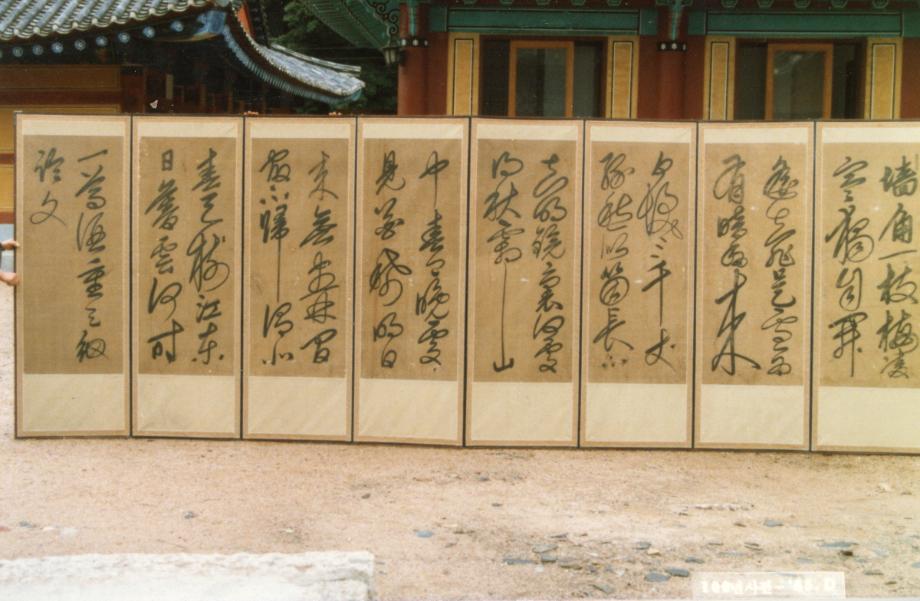 墻角一枝梅凌
寒獨自開
遙知不是雪爲
有暗香來
白髮三千丈
緣愁似箇長不
知明鏡裏何處
得秋霜山
中春已晚處
見花稀明日
來應盡林間
宿不歸渭北
春天樹江東
日暮雲何時
一尊酒重與細
論文